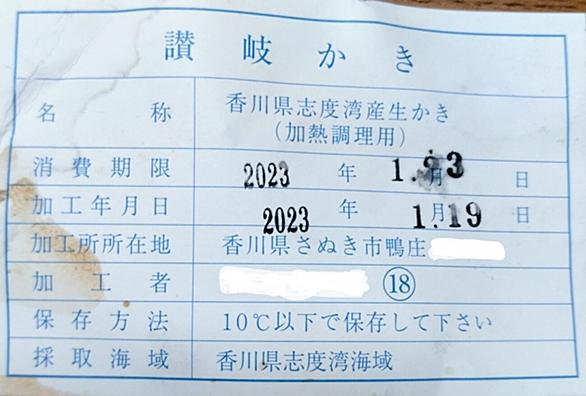 讃岐かき
名称 香川県志度湾産生かき
(加熱調理用)
消費期限 2023 年 1.23 月 日
加工年月日 2023 年 1.19 月 日
加工所所在地 香川県さぬき市鴨庄
加工者 ⑱
保存方法 10℃以下で保存して下さい
採取海域 香川県志度湾海域